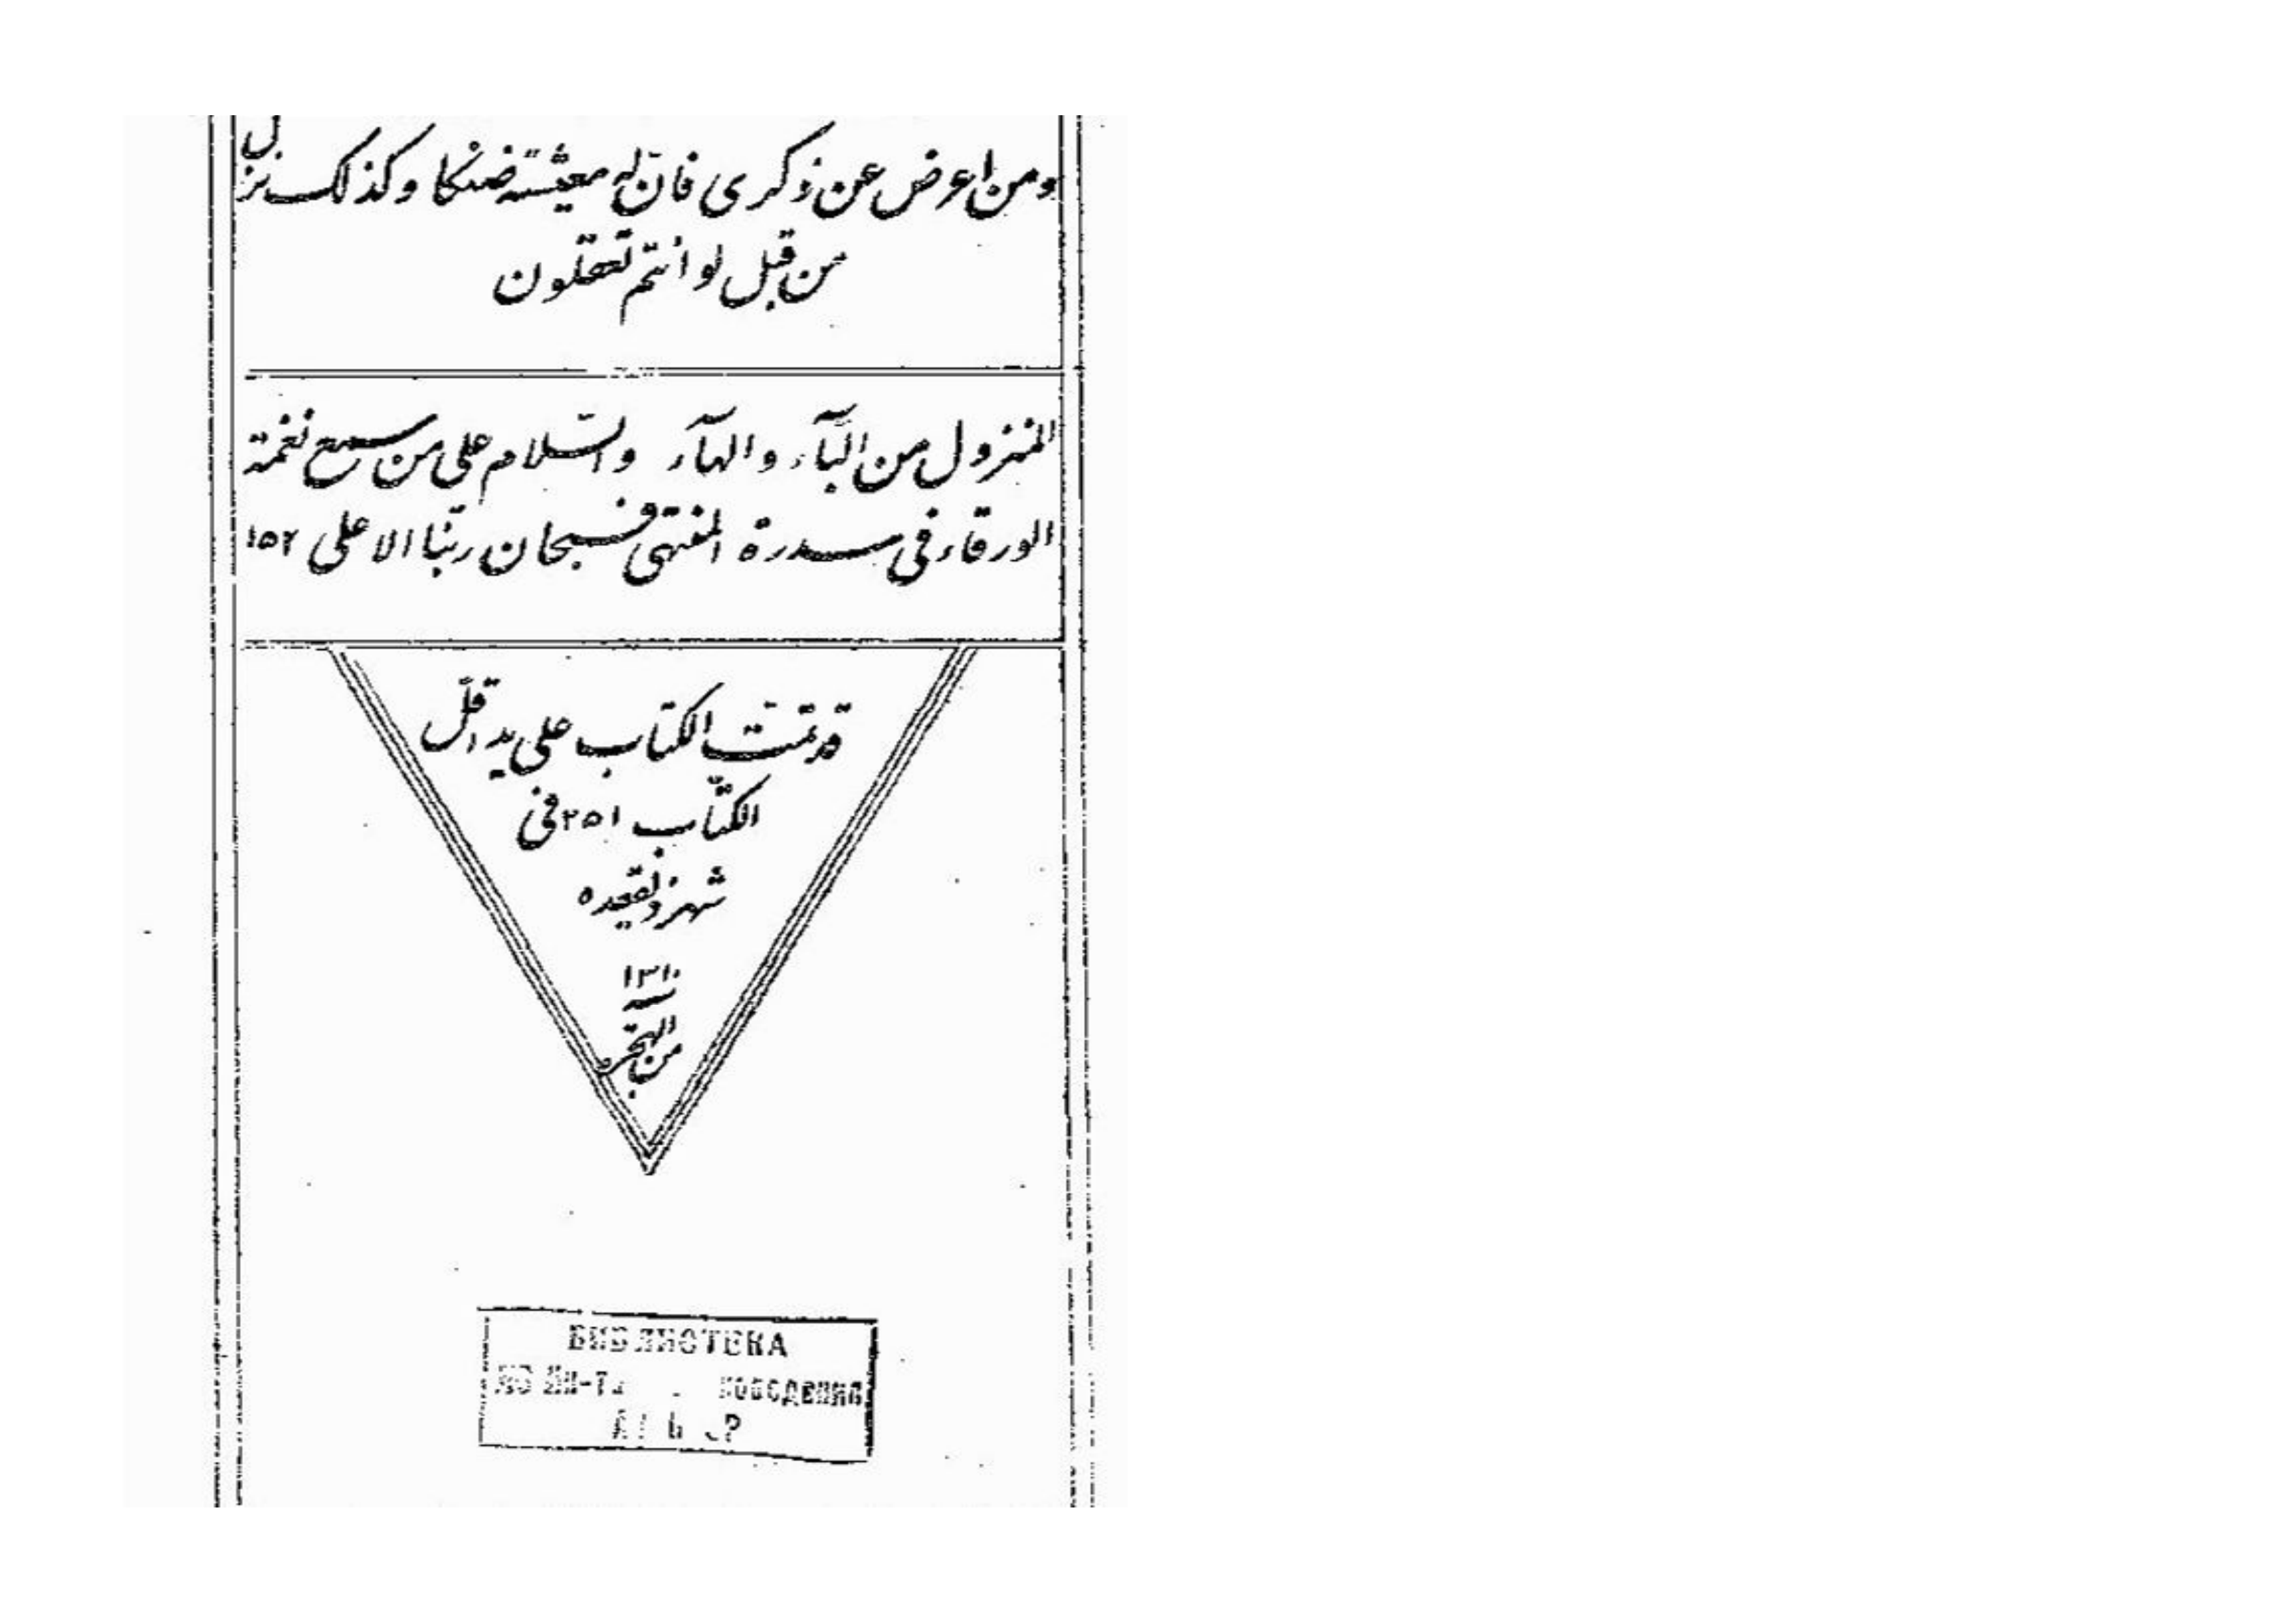 ومن اعرض عن ذکری فان له معیشة ضنکا وکذلک نزل
من قبل لو انتم تعقلون
المنزول من البآء والهآء والسّلام علی من سمع نغمة
الورقاء فی سدرة المنتهی فسبحان ربّنا الاعلی ١٥٢
قد تمّت الکتاب علی ید اقلّ
الکتّاب ٢٥١ فی
شهر ذیقعده
١٣١٠
من الهجرة
БИБЛИОТЕКА